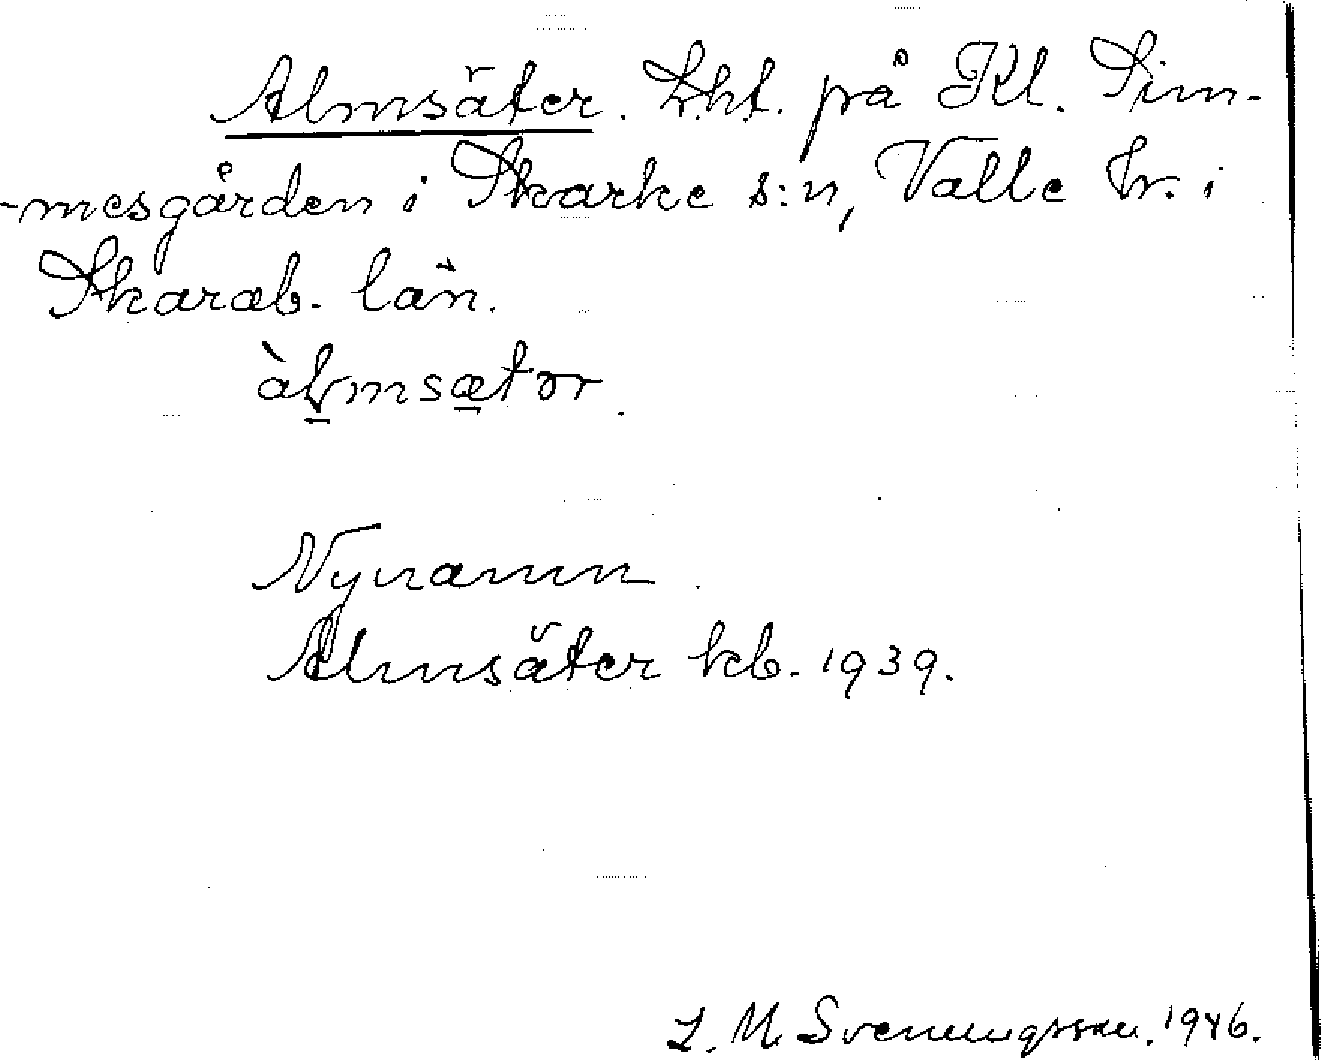 Almsäter. Lht. på Kl. Sim-
-mesgården i Skarke s:n, Valle hr. i
Skarab. län.
àlmsætər.
Nynamn.
Almsäter kb. 1939.
L. M. Svenungsson. 1946.